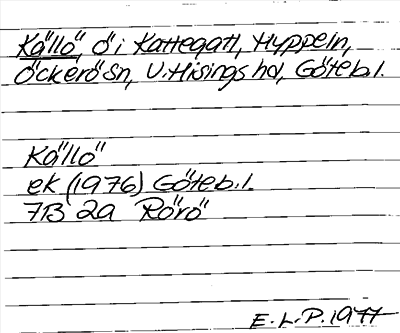 Källö, ö i Kattegatt, Hyppeln,
Öckerö sn, V. Hisings hd, Göteb. l.
Källö
ek (1976) Göteb. l.
7B 2a Rörö
E. L. P. 1977